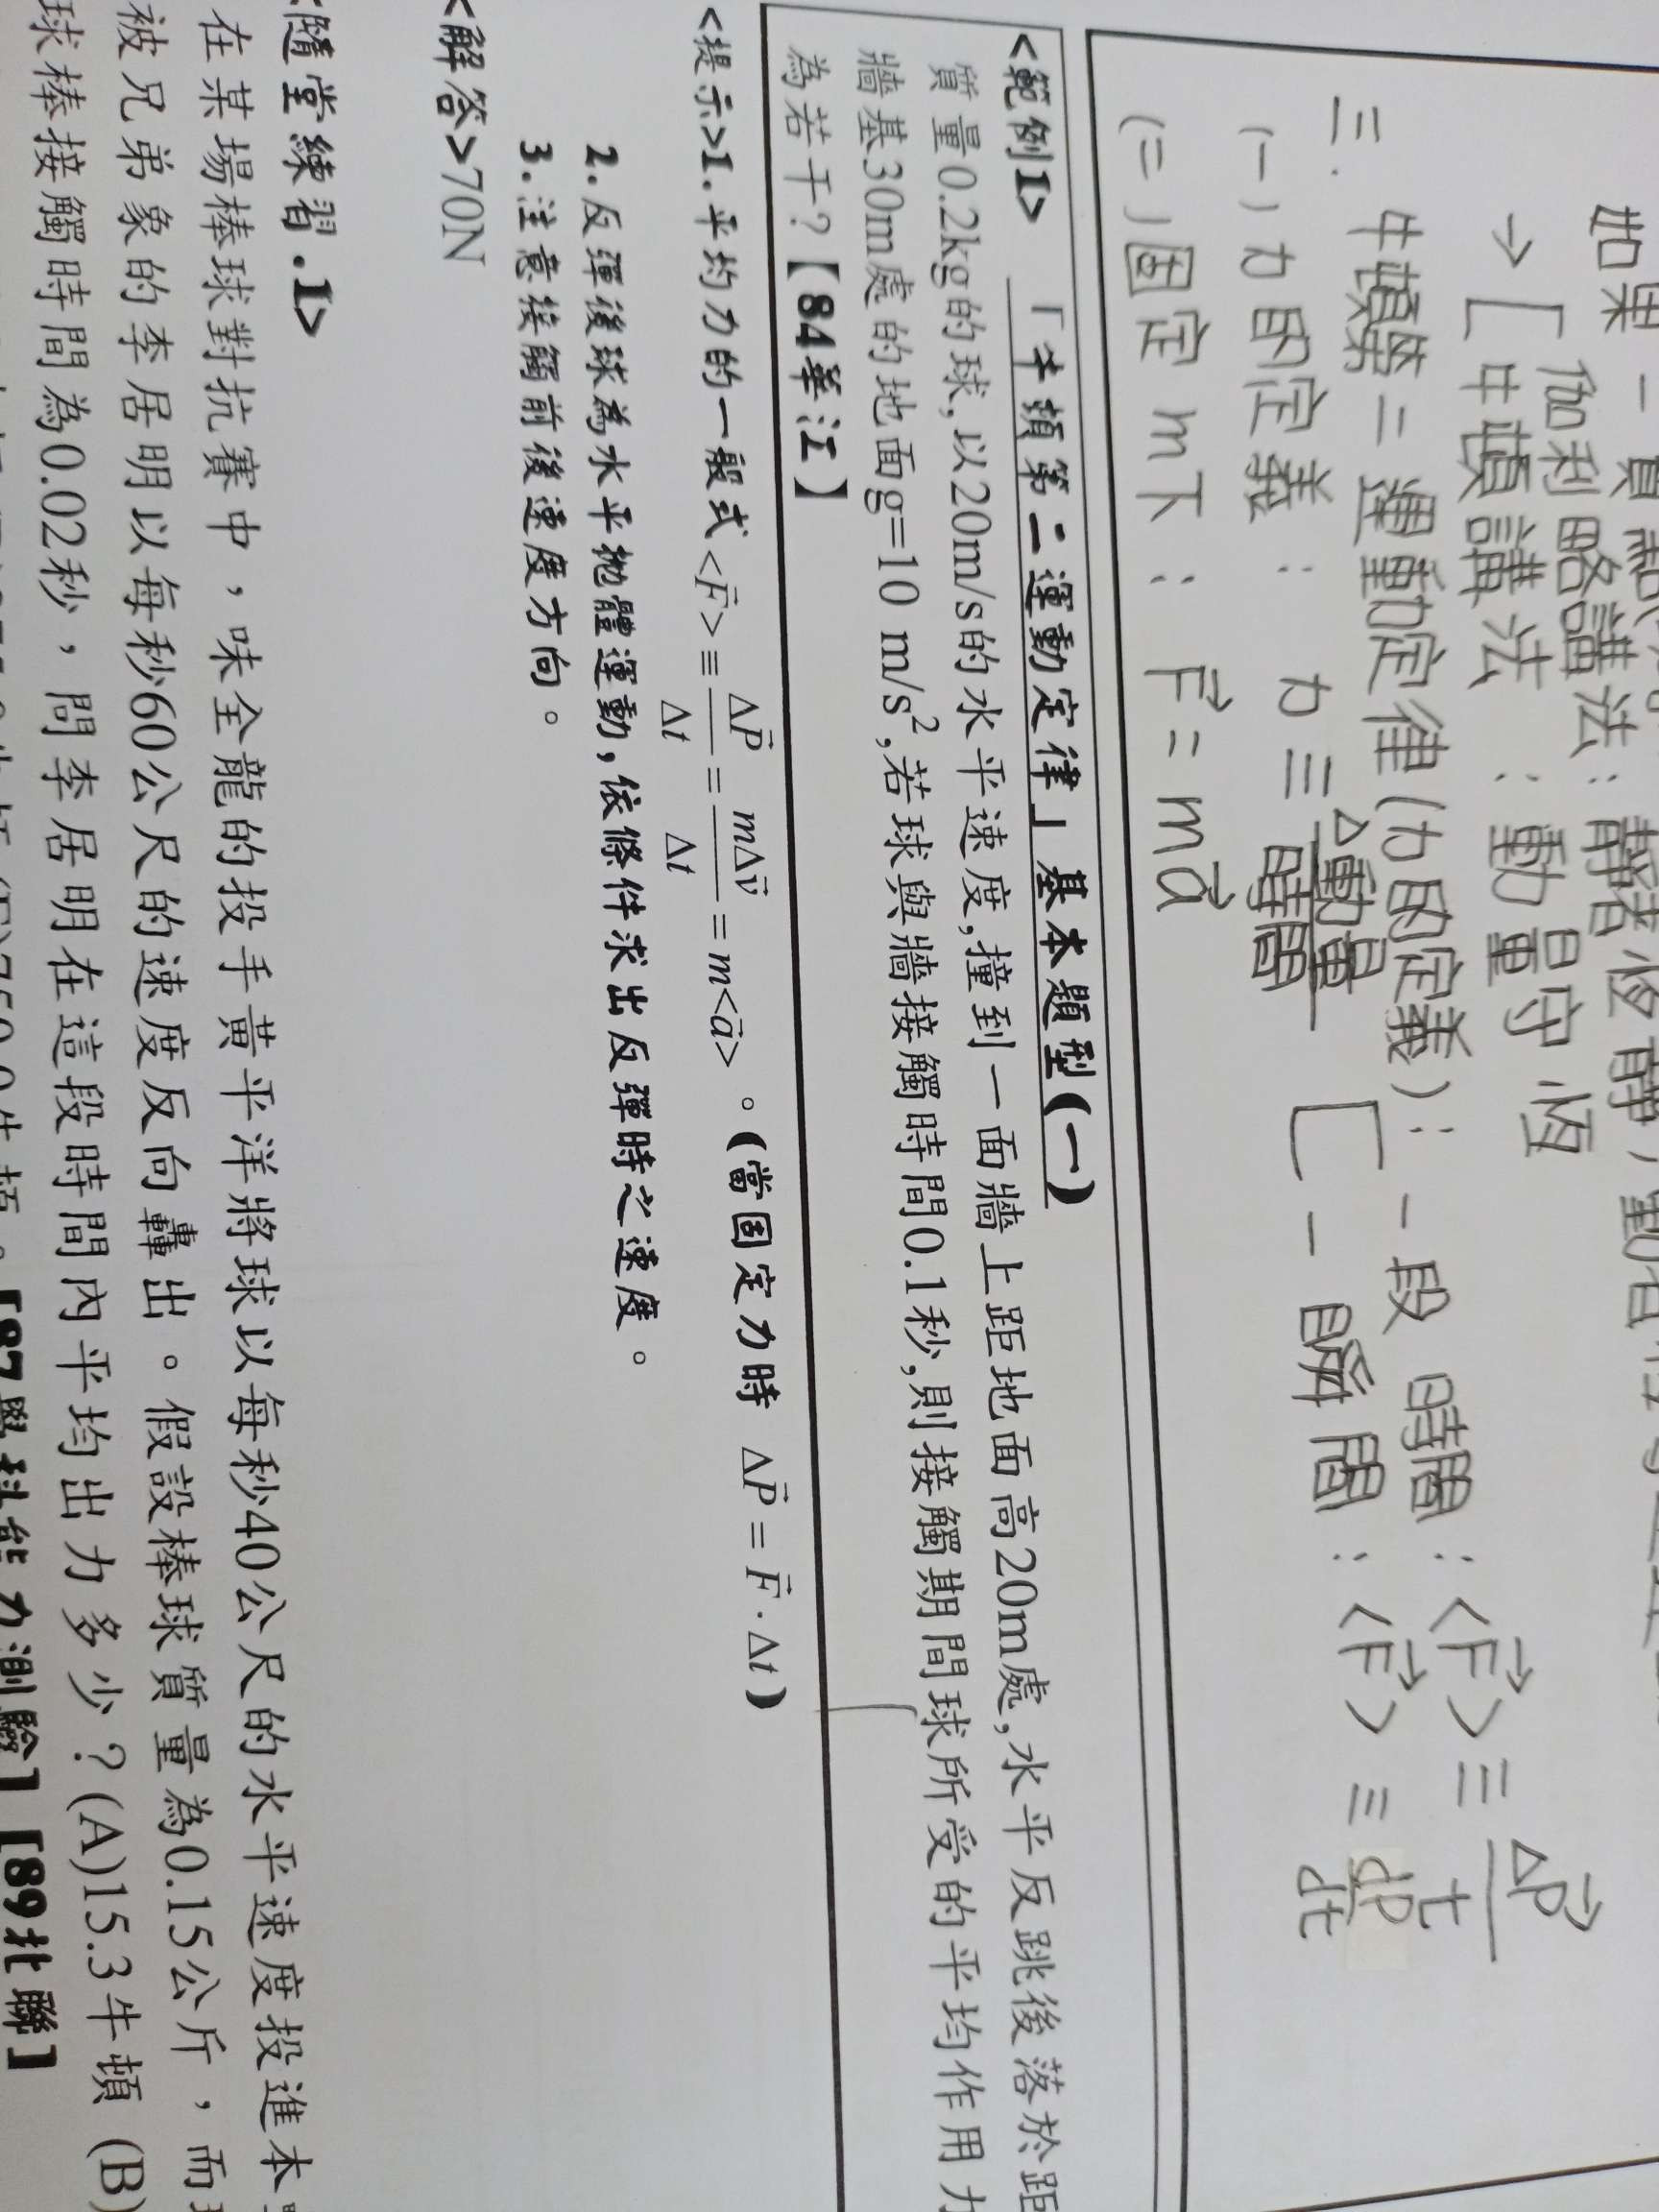 如果一質點
伽利略講法：靜者恆靜，動者恆
→ 牛頓講法：動量守恆
三. 牛頓第二運動定律(力的定義)：一段時間：<F⃗> ≡ ΔP⃗/t
一瞬間：<F⃗> ≡ dp/dt
(一) 力的定義：力 ≡ Δ動量/時間
(二) 固定m下：F⃗ = ma⃗
<範例1> 「牛頓第二運動定律」基本題型(一)
質量0.2kg的球,以20m/s的水平速度,撞到一面牆上距地面高20m處,水平反跳後落於距
牆基30m處的地面g=10 m/s²,若球與牆接觸時間0.1秒,則接觸期間球所受的平均作用力
為若干?【84華江】
<提示>1.平均力的一般式<F⃗> ≡ ΔP⃗/Δt = mΔv⃗/Δt = m<a⃗>。(當固定力時 ΔP⃗ = F⃗·Δt)
2.反彈後球為水平拋體運動,依條件求出反彈時之速度。
3.注意接觸前後速度方向。
<解答>70N
隨堂練習.1>
在某場棒球對抗賽中，味全龍的投手黃平洋將球以每秒40公尺的水平速度投進本
被兄弟象的李居明以每秒60公尺的速度反向轟出。假設棒球質量為0.15公斤，而
球棒接觸時間為0.02秒，問李居明在這段時間內平均出力多少？(A)15.3牛頓 (B)
【87學科能力測驗】【89北聯】